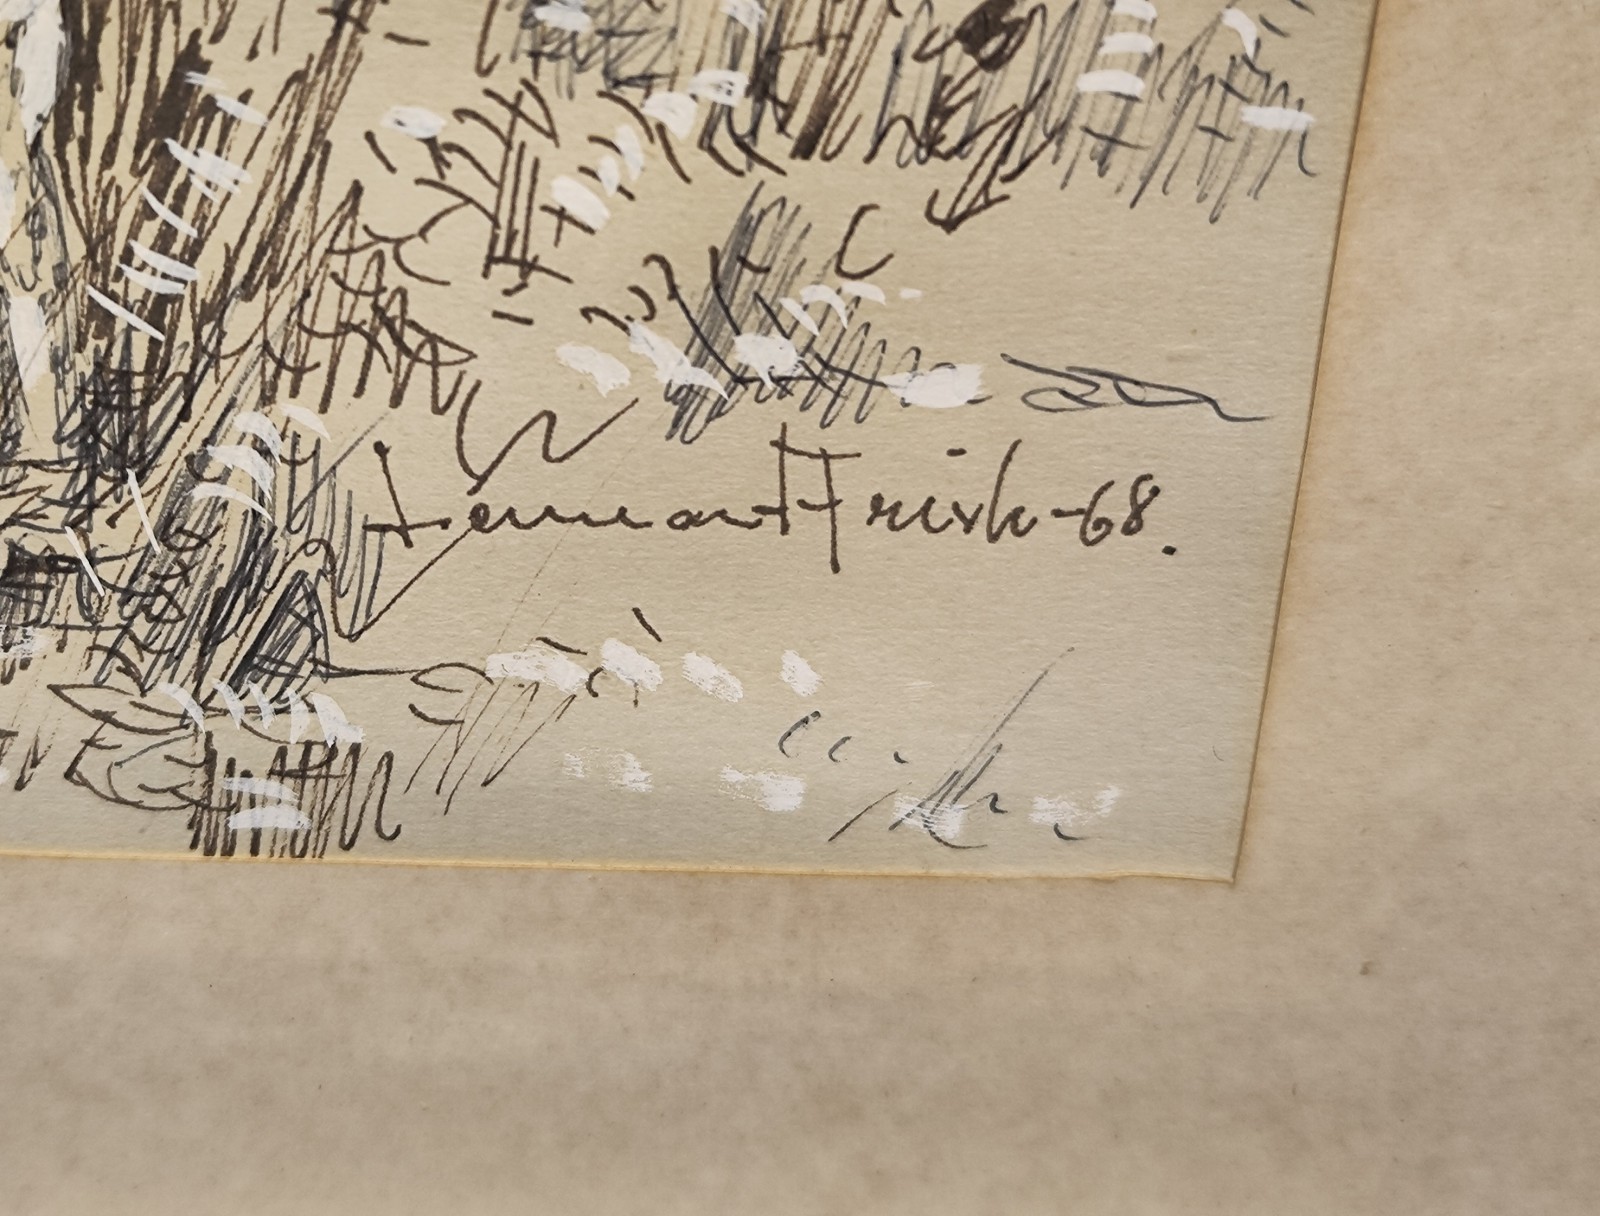 Lennart Frisk-68.